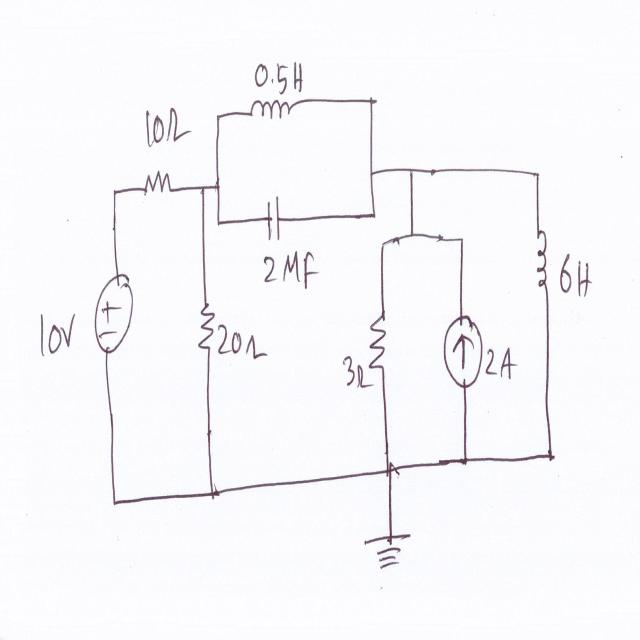 0.5H
10Ω
2MF
10V
20Ω
3Ω
2A
6H